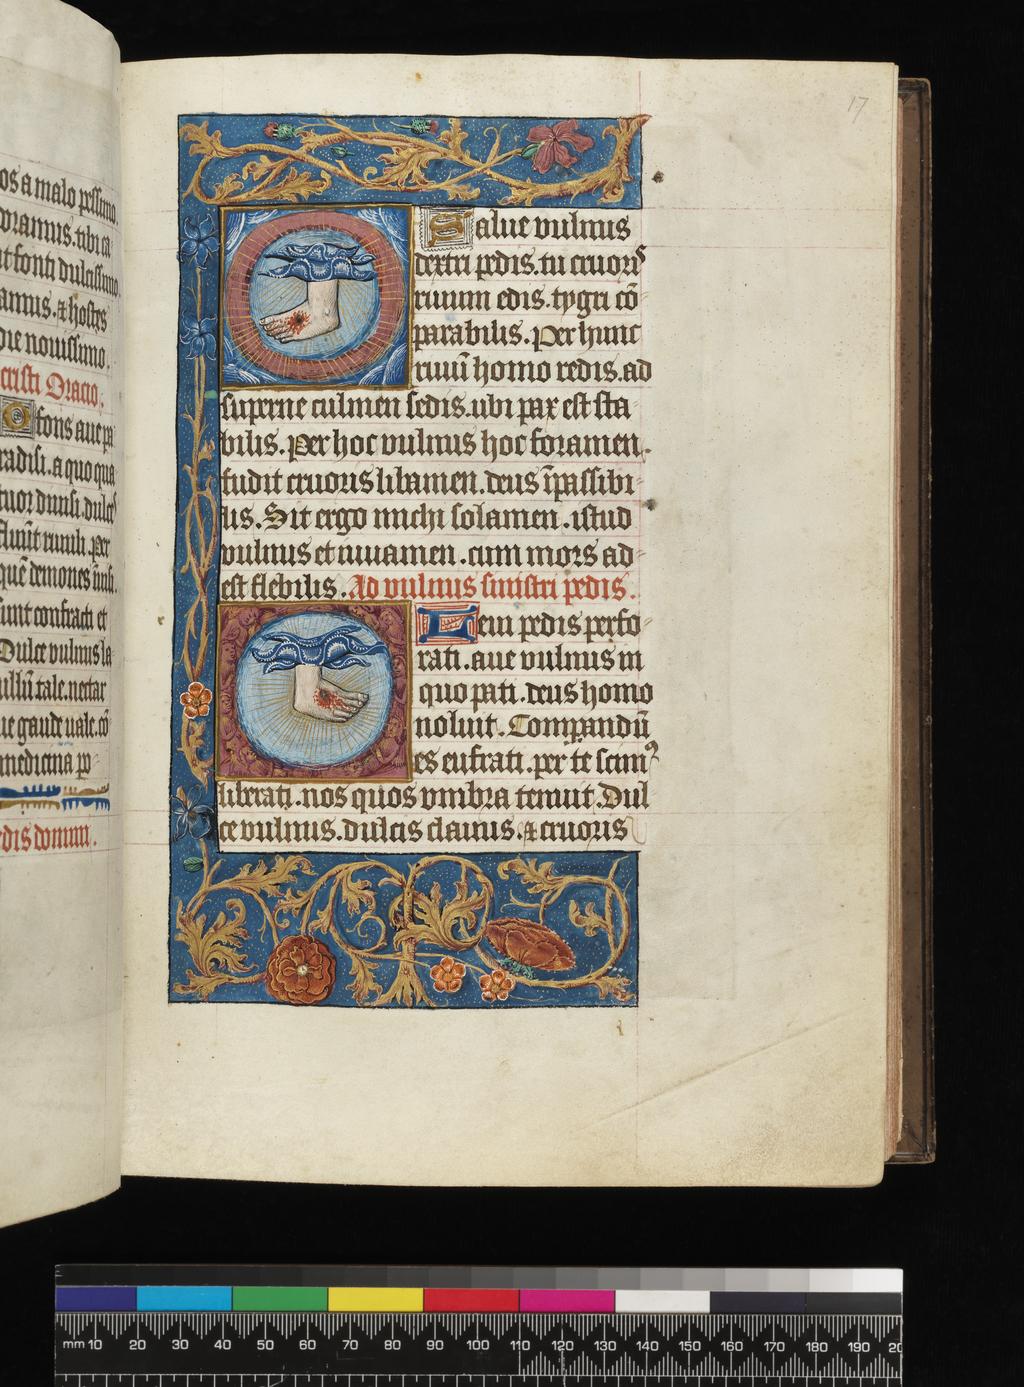 os a malo pessimo.
oramus. tibi ca
ut fonti dulcissimo
amus. & hostes
die nouissimo.
cristi Oracio.
O fons aue pa
radisi. a quo qua
tuor diuisi. dulcẽ
fluũt riuuli. per
quẽ demones
sunt confracti et
Dulce vulnus la
ullũ tale. nectar
ue gaude uale. cõ
medicina po
edis domini.
17
Salue vulnus
dextri pedis. tu cruoris
riuum edis. tygri cõ
parabilis. Per hunc
riuũ homo redis. ad
superne culmen sedis. ubi pax est sta
bilis. Per hoc vulnus hoc foramen.
fudit cruoris libamen. deus ĩpassibi
lis. Sit ergo michi solamen. istud
vulnus et iuuamen. cum mors ad
est flebilis. Ad vulnus sinistri pedis.
Leui pedis perfo
rati. aue vulnus in
quo pati. deus homo
noluit. Comparandũ
es eufrati. per te scimꝰ
liberati. nos quos vmbra tenuit. Dul
ce vulnus. dulcis clauus. & cruoris
mm 10 20 30 40 50 60 70 80 90 100 110 120 130 140 150 160 170 180 190 20